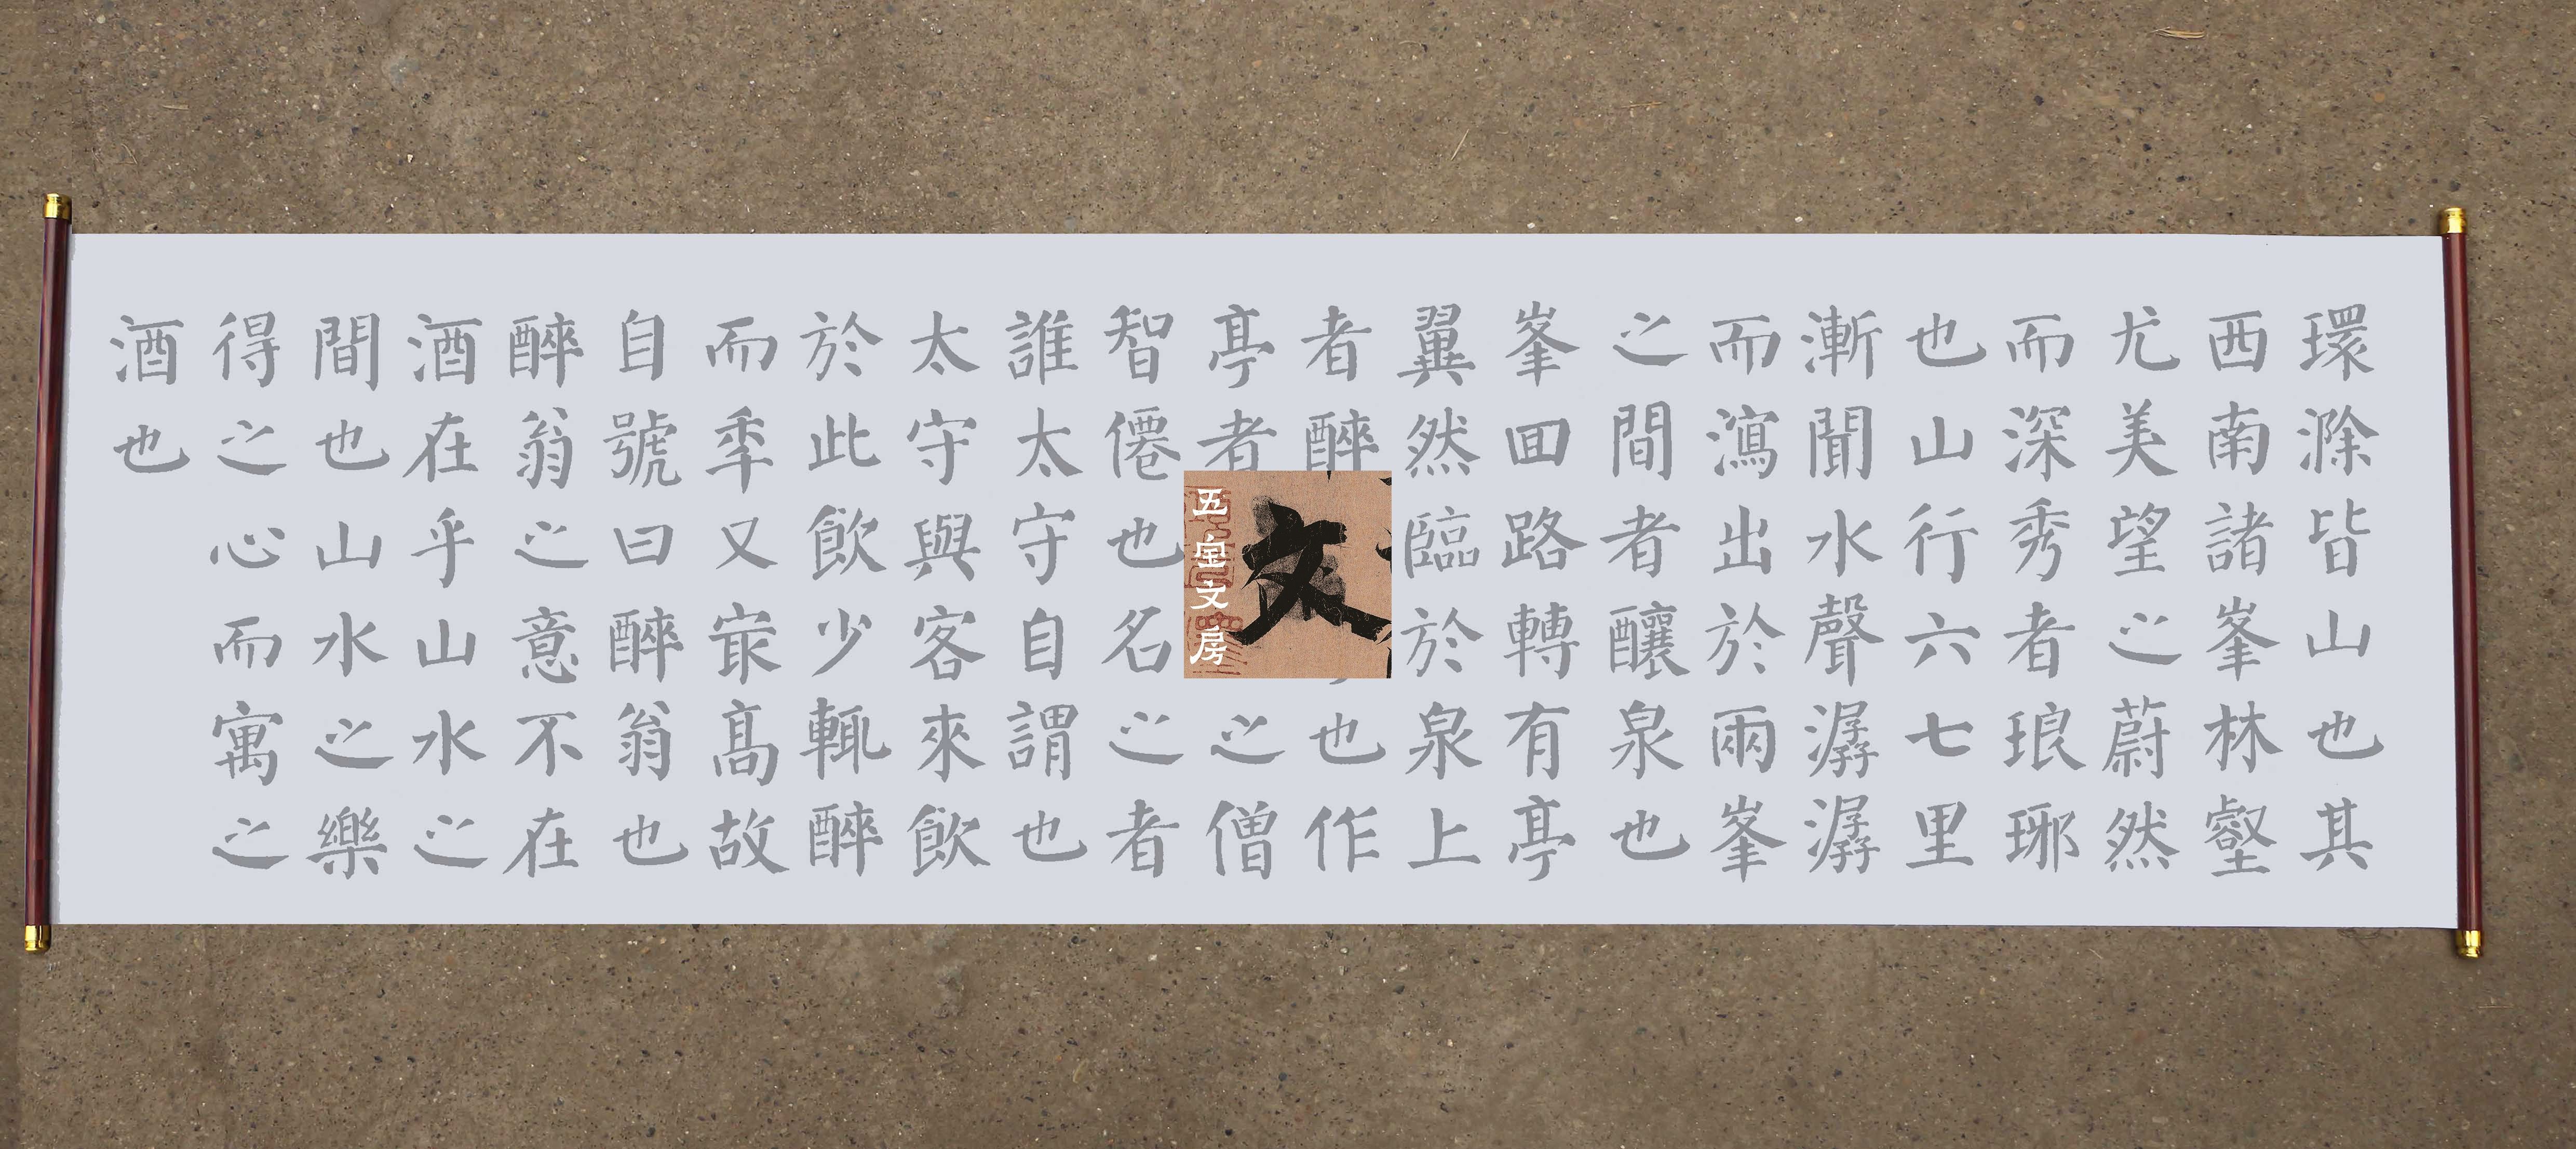 環滁皆山也其
西南諸峯林壑
尤美望之蔚然
而深秀者琅琊
也山行六七里
漸聞水聲潺潺
而瀉出於兩峯
之間者釀泉也
峯囬路轉有亭
翼然臨於泉上
者醉也作
亭者之僧
智僊也名之者
誰太守自謂也
太守與客來飲
於此飲少輒醉
而秊又㝡髙故
自號曰醉翁也
醉翁之意不在
酒在乎山水之
間也山水之樂
得之心而寓之
酒也
文
五宝文房